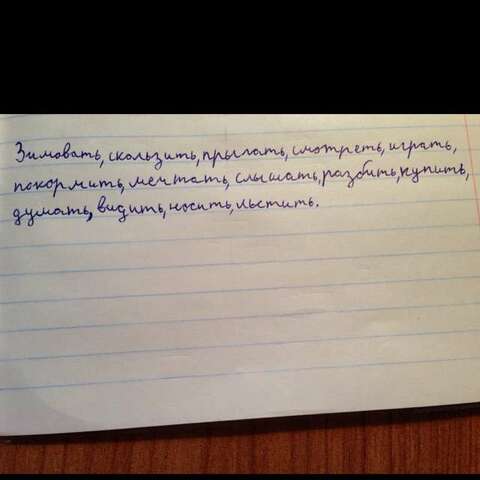 Зимовать, скользить, прыгать, смотреть, играть,
покормить, мечтать, слышать, разбить, купить,
думать, видить, носить, льстить.